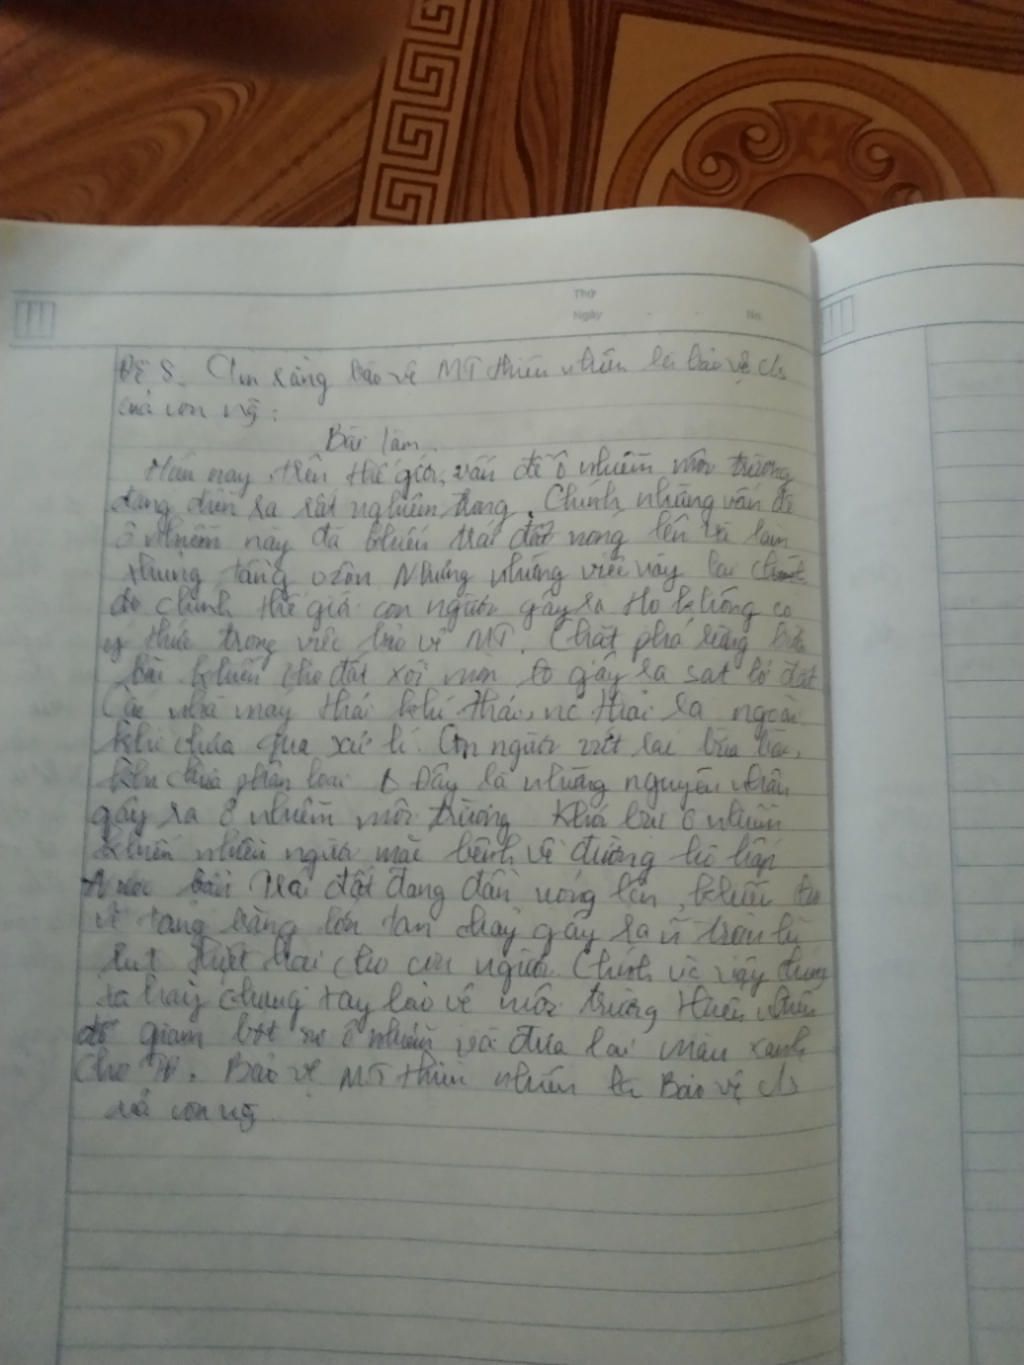 Thứ
Ngày - - No.
Đề 8. CM rằng bảo vệ MT thiên nhiên là bảo vệ cs
của con ng:
Bài làm
Hiện nay, trên thế giới, vấn đề ô nhiễm môi trường
đang diễn ra rất nghiêm trọng. Chính những vấn đề
ô nhiễm này đã khiến trái đất nóng lên và làm
thủng tầng ozôn Nhưng những việc này lại
do chính thế giới con người gây ra Họ không có
ý thức trong việc bảo vệ MT. Chặt phá rừng bừa
bãi khiến cho đất xói mòn gây ra sạt lở đất
Các nhà máy thải khí thải, nc thải ra ngoài
khi chưa qua xử lí. Con người vứt rác bừa bãi,
khi chưa phân loại Đây là những nguyên nhân
gây ra ô nhiễm môi trường Khói bụi ô nhiễm
khiến nhiều người mắc bệnh về đường hô hấp
Trái đất đang dần nóng lên, khiến
tảng băng lớn tan chảy gây ra
lụt thiệt hại cho con người Chính vì vậy chúng
ta hãy chung tay bảo vệ môi trường thiên nhiên
để giảm bớt sự ô nhiễm và đưa lại màu xanh
cho . Bảo vệ MT thiên nhiên là Bảo vệ cs
của con ng